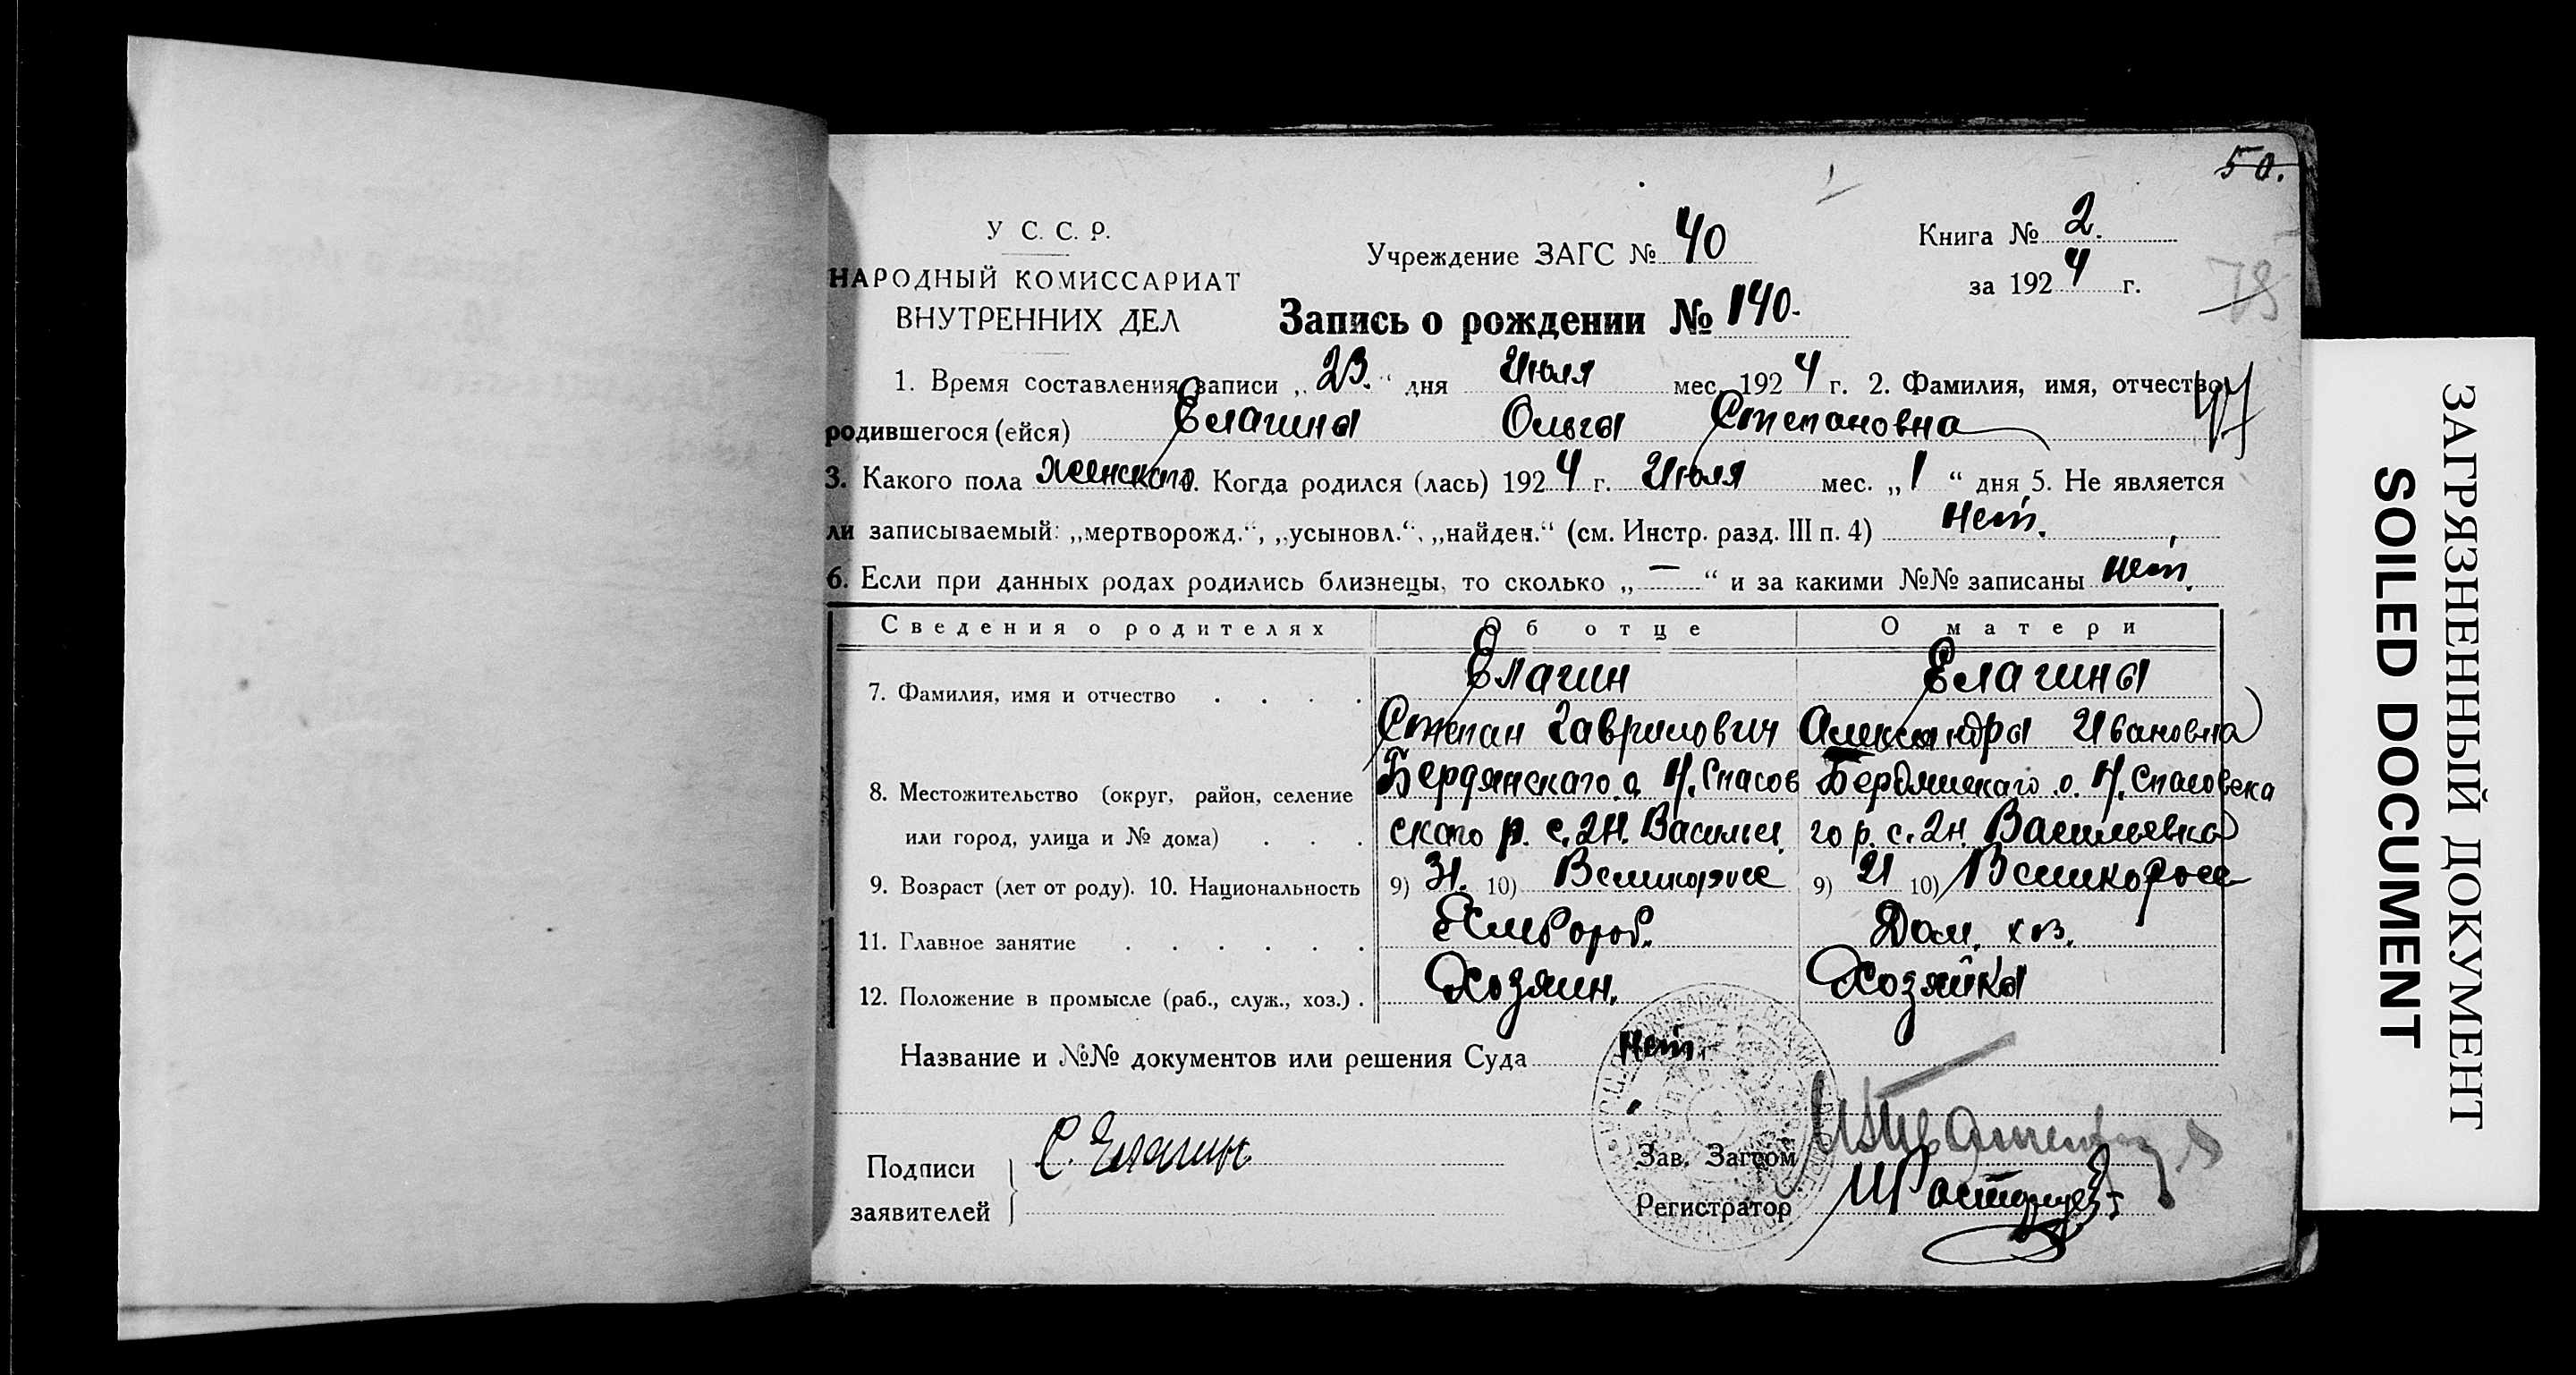 50.
У С. С. Р.
НАРОДНЫЙ КОМИССАРИАТ
ВНУТРЕННИХ ДЕЛ
Учреждение ЗАГС № 40
Книга № 2.
за 1924 г.
78
Запись о рождении № 140.
1. Время составления записи „23.“ дня Июля мес. 1924 г. 2. Фамилия, имя, отчество
родившегося (ейся) Елагина Ольга Степановна
3. Какого пола женскаго 4. Когда родился (лась) 1924 г. Июля мес. „1“ дня 5. Не является
ли записываемый: „мертворожд.“, „усыновл.“, „найден.“ (см. Инстр. разд. III п. 4) нет.
6. Если при данных родах родились близнецы, то сколько „—“ и за какими №№ записаны нет.
Сведения о родителях Об отце О матери
7. Фамилия, имя и отчество . . . . Елагин Елагина
Степан Гаврилович Александра Ивановна
8. Местожительство (округ, район, селение Бердянскаго о. Н. Спасов Бердянскаго о. Н. Спасовска
или город, улица и № дома) . . . скаго р. с. 2Н. Васильев. го р. с. 2н. Васильевка
9. Возраст (лет от роду). 10. Национальность 9) 31. 10) Великорос 9) 21 10) Великорос
11. Главное занятие . . . . . . Хлебороб. Дом. хоз.
12. Положение в промысле (раб., служ., хоз.) . Хозяин. Хозяйка
Название и №№ документов или решения Суда нет.
Подписи
заявителей
С. Елагин
Зав. Загсом
Регистратор
ЗАГРЯЗНЕННЫЙ ДОКУМЕНТ
SOILED DOCUMENT